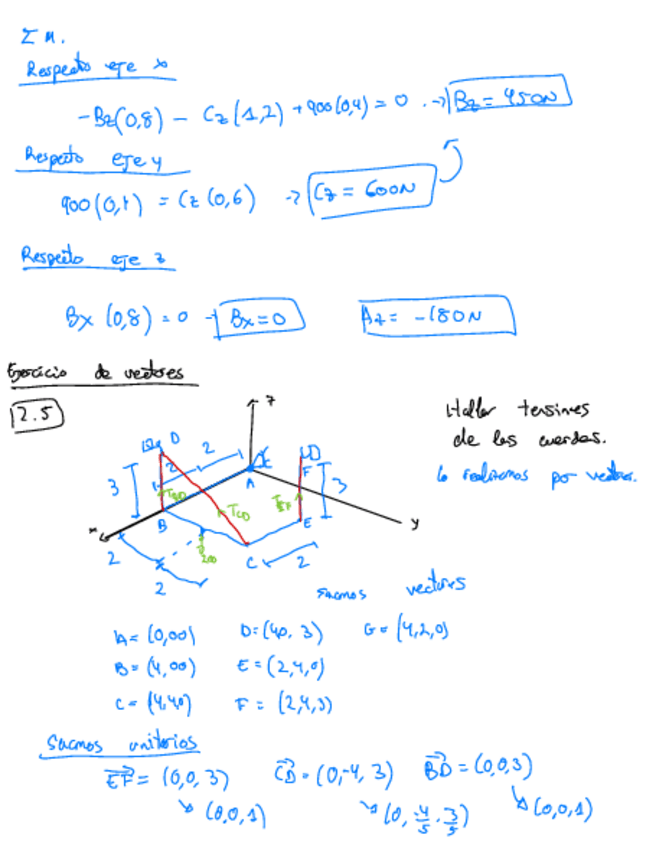 Σ M.
Respecto eje x
-Bz(0,8) - Cz(1,2) + 900(0,4) = 0 → Bz = 450N
Respecto eje y
900(0,4) = Cz(0,6) → Cz = 600N
Respecto eje z
Bx (0,8) = 0 → Bx = 0 Az = -180N
Ejercicio de vectores
2.5
Hallar tensiones
de las cuerdas.
lo realizamos por vectores.
z
D
2
2
2
A
F
3
3
TBD
TCD
TEF
x
B
E
y
200
C
2
2
2
Sacamos vectores
A = (0,00) D = (40, 3) G = (4,2,0)
B = (4,00) E = (2,4,0)
C = (4,40) F = (2,4,3)
Sacamos unitarios
EF = (0,0,3) CD = (0,-4,3) BD = (0,0,3)
↘ (0,0,1) ↘ (0, -4/5, 3/5) ↘ (0,0,1)